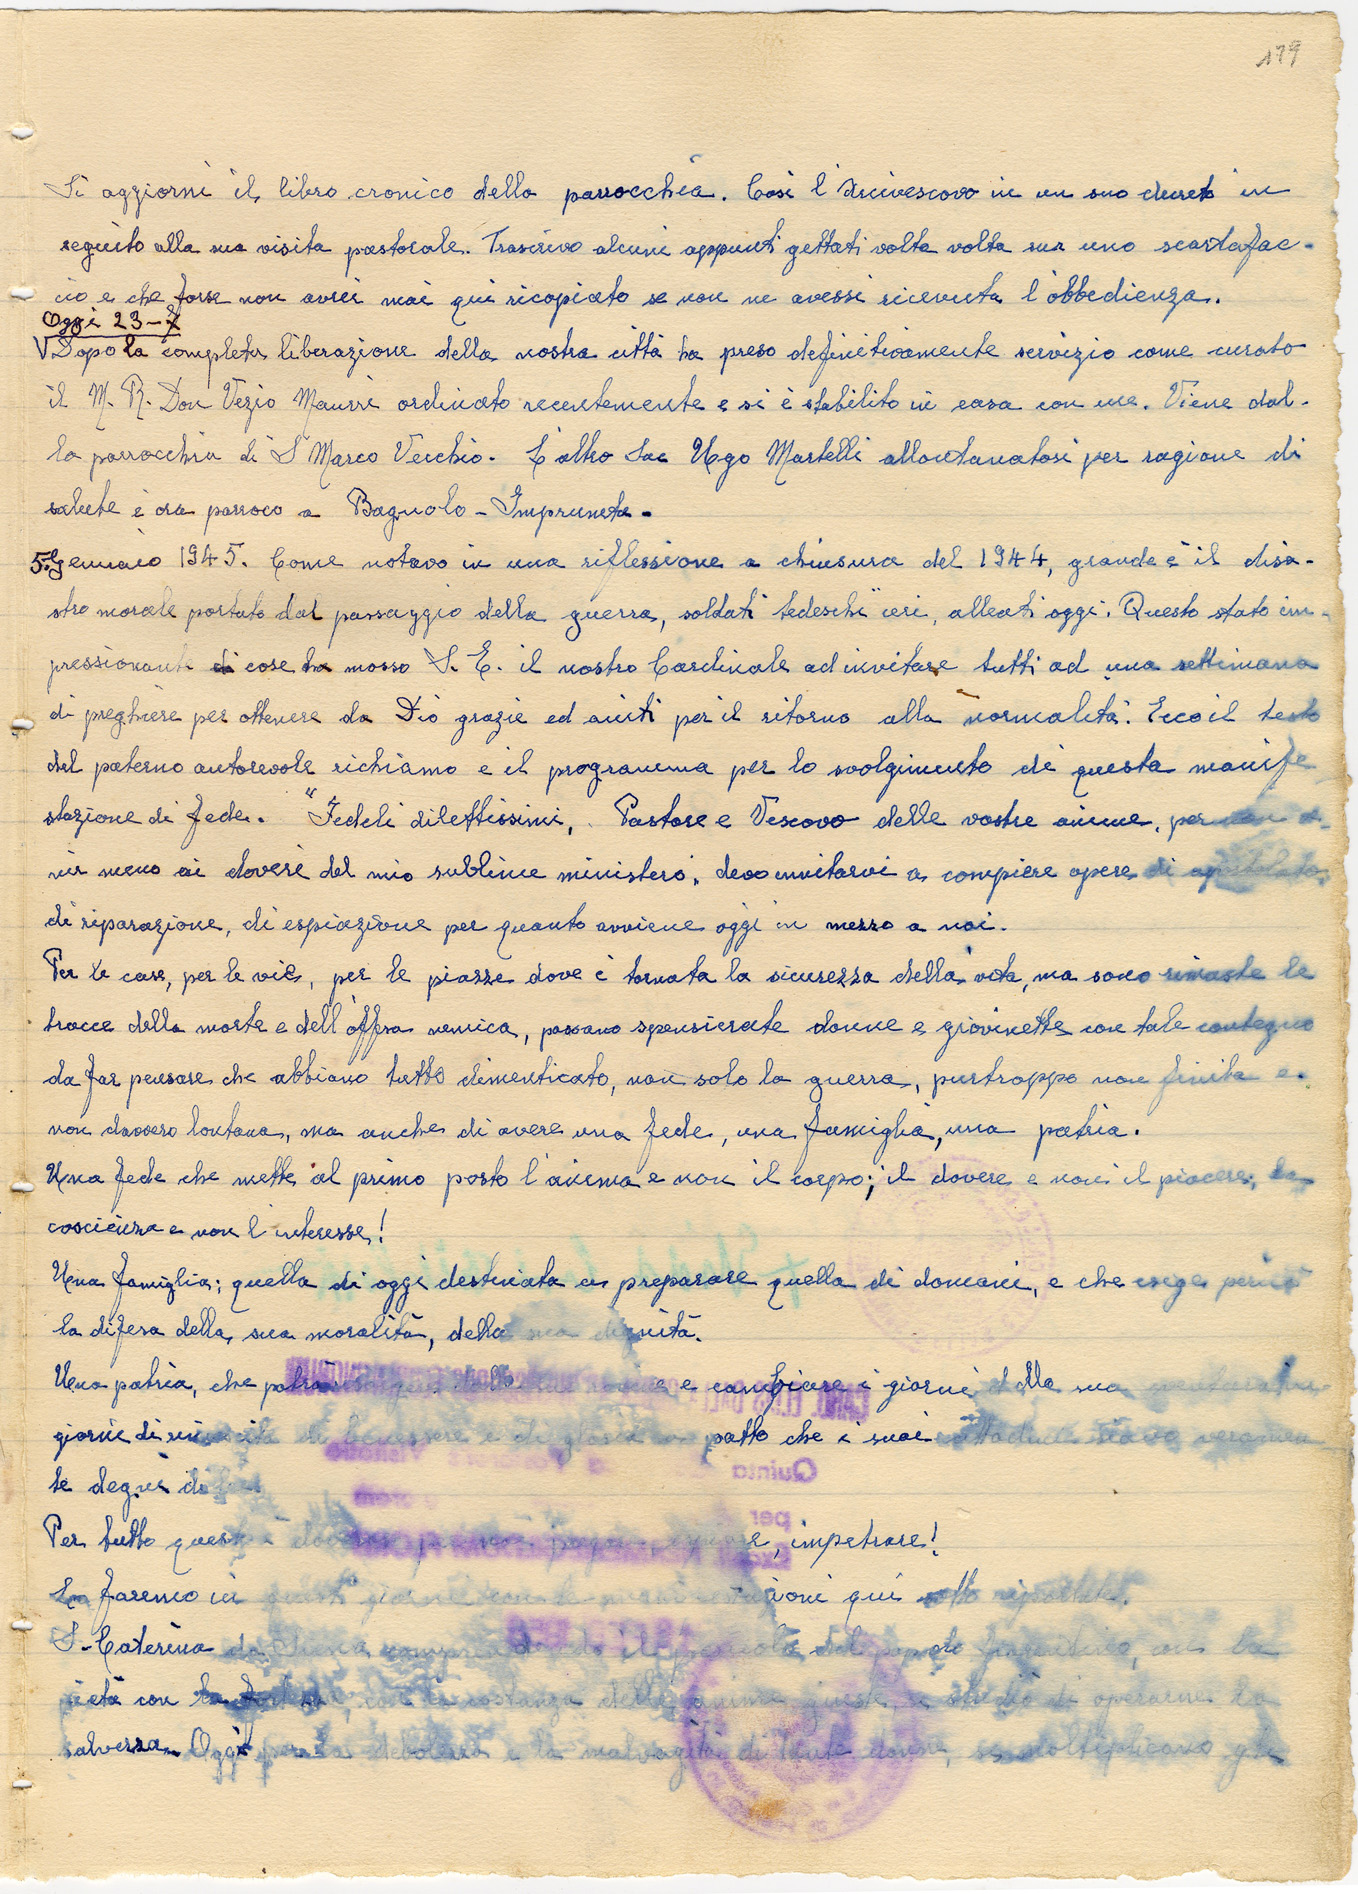 179
Si aggiorni il libro cronico della parrocchia. Così l'Arcivescovo in un suo decreto in
seguito alla sua visita pastorale. Trascrivo alcuni appunti gettati volta volta sur uno scartafac-
cio e che forse non avrei mai qui ricopiato se non ne avessi ricevuta l'obbedienza.
Oggi 23-7
V Dopo la completa liberazione della nostra città ha preso definitivamente servizio come curato
il M. R. Don Vezio Maurri ordinato recentemente e si è stabilito in casa con me. Viene dal-
la parrocchia di S Marco Vecchio. L'altro Sac Ugo Martelli allontanatosi per ragione di
salute è ora parroco a Bagnolo - Impruneta.
5. Gennaio 1945. Come notavo in una riflessione a chiusura del 1944, grande è il disa-
stro morale portato dal passaggio della guerra, soldati tedeschi ieri, alleati oggi. Questo stato im-
pressionante di cose ha mosso S. E. il nostro Cardinale ad invitare tutti ad una settimana
di preghiere per ottenere da Dio grazie ed aiuti per il ritorno alla normalità. Ecco il testo
del paterno autorevole richiamo e il programma per lo svolgimento di questa manife
stazione di fede. "Fedeli dilettissimi, Pastore e Vescovo delle vostre anime, per
nir meno ai doveri del mio sublime ministero, devo invitarvi a compiere opere di apostolato,
di riparazione, di espiazione per quanto avviene oggi in mezzo a noi.
Per le case, per le vie, per le piazze dove è tornata la sicurezza della vita, ma sono rimaste le
tracce della morte e dell'offesa nemica, passano spensierate donne e giovinette con tale contegno
da far pensare che abbiano tutto dimenticato, non solo la guerra, purtroppo non finita e
non davvero lontana, ma anche di avere una fede, una famiglia, una patria.
Una fede che mette al primo posto l'anima e non il corpo; il dovere e non il piacere; la
coscienza e non l'interesse!
Una famiglia; quella di oggi destinata a preparare quella di domani, e che esige perciò
la difesa della sua moralità, della sua dignità.
Una patria, che potrà e cambiare i giorni della sua
giorni di rinascita di benessere e di gloria a patto che i suoi cittadini siano veramen
te degni di
Per tutto questo è pregare, espiare, impetrare!
Lo faremo in questi giorni con le qui sotto riportate.
S. Caterina da Siena il pericolo del popolo fiorentino, con la
pietà con la con la costanza delle anime giuste di operarne la
salvezza. Oggi per la debolezza e la malvagità di tante donne, si moltiplicano gli